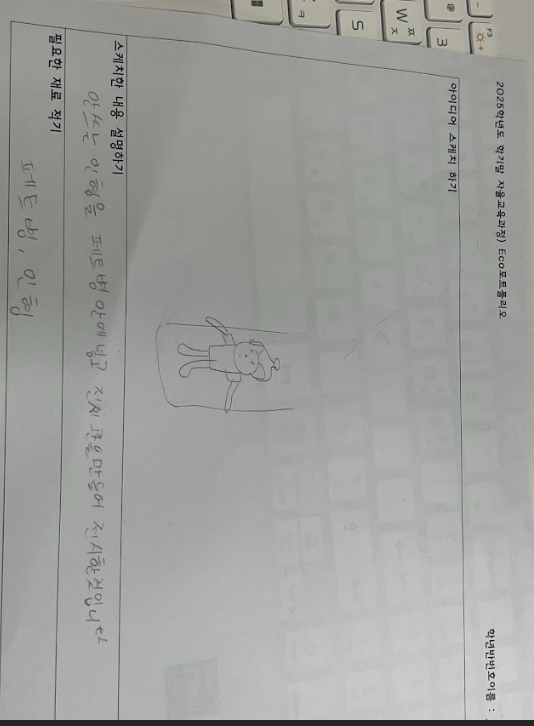 2025학년도 학기말 자율교육과정) Eco포트폴리오
학년반번호이름 :
아이디어 스케치 하기
스케치한 내용 설명하기
안쓰는 인형을 페트병 안에 넣고 전시 관을 만들어 전시할것입니다
필요한 재료 적기
페트병, 인형
F3
3
W
ㅉ
ㅈ
S
ㅋ